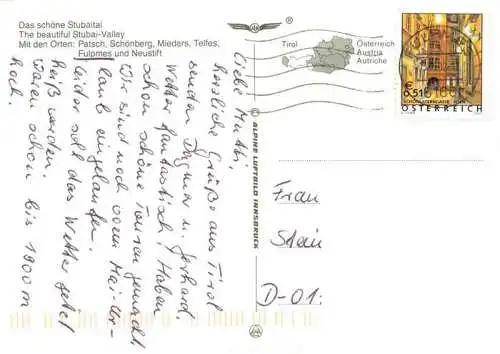 Das schöne Stubaital
The beautiful Stubai-Valley
Mit den Orten: Patsch, Schönberg, Mieders, Telfes,
Fulpmes und Neustift
®
Tirol
Österreich
Austria
Autriche
€ 0,51
ÖSTERREICH
© ALPINE LUFTBILD INNSBRUCK
Liebe Mutti,
herzliche Grüße aus Tirol
senden Dagmar u. Gerhard.
Wetter fantastisch! Haben
schon schöne Touren gemacht.
Wir sind noch vom Mai-Ur-
laub eingelaufen.
Leider soll das Wetter jetzt
heiß werden.
Waren schon bis 1800 m
hoch.
Frau
Stein
D-01: